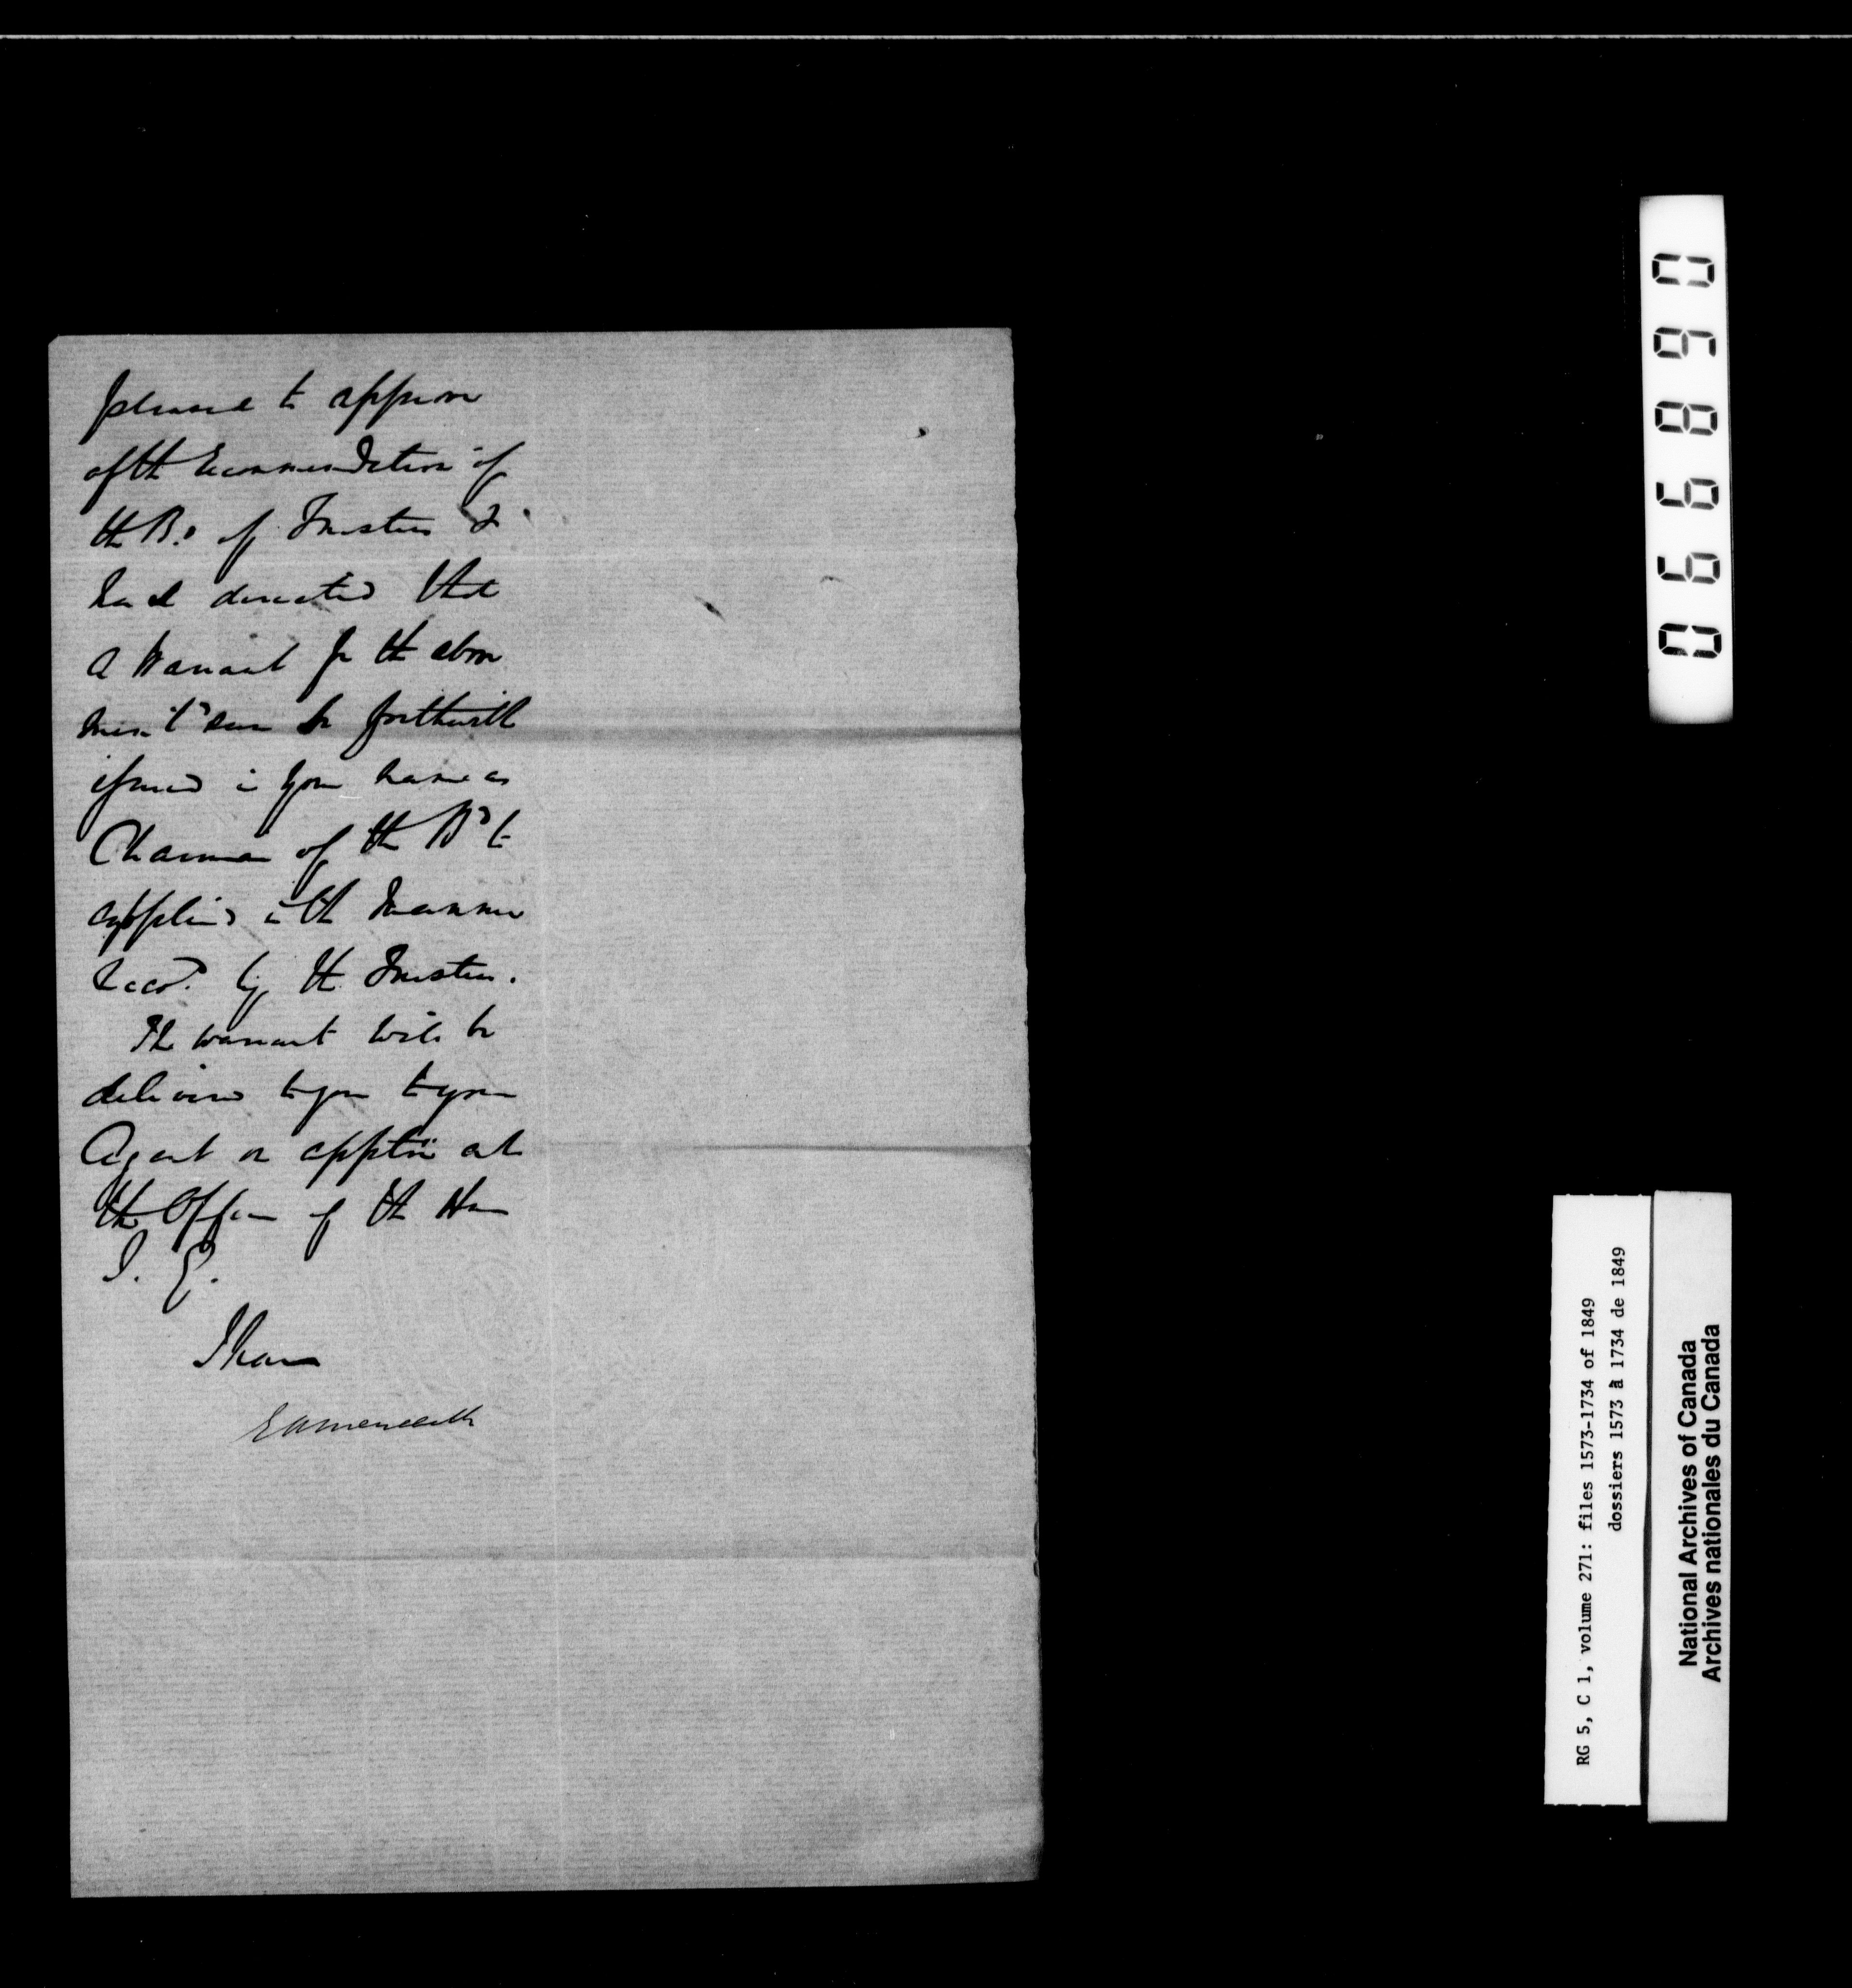 pleased to approve
of the recommendation of
the Bd of Trustees &
has directed that
a Warrant for the above
ment'd sum be forthwith
issued in your name as
Chairman of the Bd to
applied in the manner
reco'd by the Trustees.
The warrant will be
delivered to you to your
Agent on apption at
the Office of the Hon
I. G.
I have
E A Meredith
066890
RG 5, C 1, volume 271: files 1573-1734 of 1849
dossiers 1573 à 1734 de 1849
National Archives of Canada
Archives nationales du Canada